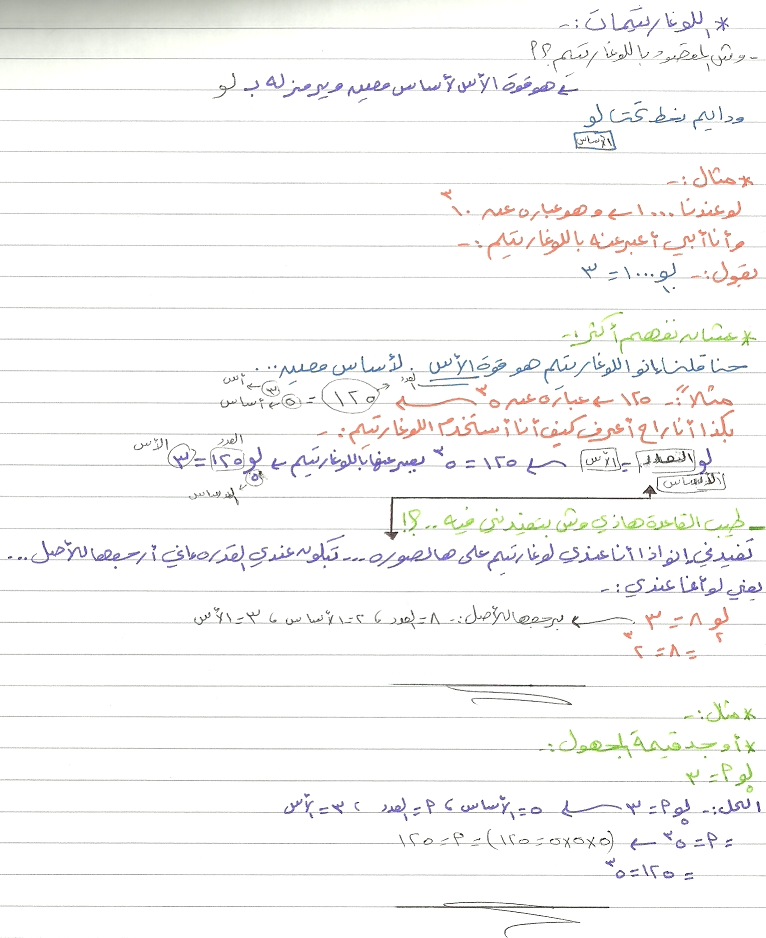 * اللوغاريتيمات :-
- وش المقصود باللوغاريتيم ؟؟
هو قوة الأس لأساس معين ويرمز له بـ لو
ودايم نحط تحت لو
الأساس
* مثال :-
لو عندنا ١٠٠٠ ← وهو عباره عن ١٠^٣
وأنا أبي أعبر عنه باللوغاريتيم :-
نقول :- لو١٠ ١٠٠٠ = ٣
* عشان نفهم أكثر :-
حنا قلنا إنو اللوغاريتيم هو قوة الأس لأساس معين ...
مثلاً :- ١٢٥ ← عبارة عن ٥^٣ ← العدد ١٢٥ = ٥^٣ ← أس ← أساس
بكذا أنا راح أعرف كيف أنا أستخدم اللوغاريتيم :-
لو العدد = الأس ← ١٢٥ = ٥^٣ نعبر عنها باللوغاريتيم ← لو٥ ١٢٥ = ٣ العدد الأس
الأساس الأساس
- طيب القاعدة هاذي وش بتفيدني فيه .. ؟!
تفيدني إنو اذا أنا عندي لوغاريتيم على هالصوره ... تكون عندي القدره إني أرجعها للأصل ...
يعني لو أنا عندي :-
لو٢ ٨ = ٣ ← نرجعها للأصل :- ٨ = العدد ، ٢ = الأساس ، ٣ = الأس
= ٨ = ٢^٣
* مثال :-
* أوجد قيمة المجهول :-
لو٥ م = ٣
الحل :- لو٥ م = ٣ ← ٥ = الأساس ، م = العدد ، ٣ = الأس
= م = ٥^٣ ← (٥×٥×٥ = ١٢٥) = م = ١٢٥
= ١٢٥ = ٥^٣